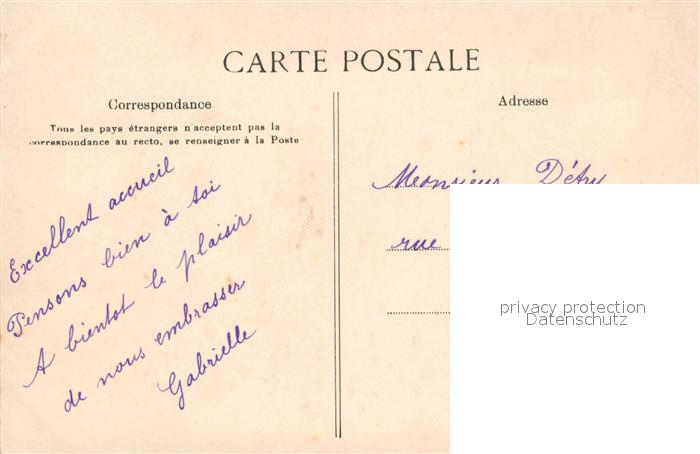 CARTE POSTALE
Correspondance
Tous les pays étrangers n'acceptent pas la
correspondance au recto, se renseigner à la Poste
Excellent accueil
Pensons bien à toi
A bientot le plaisir
de nous embrasser
Gabrielle
Adresse
Monsieur Déthy
rue
privacy protection
Datenschutz